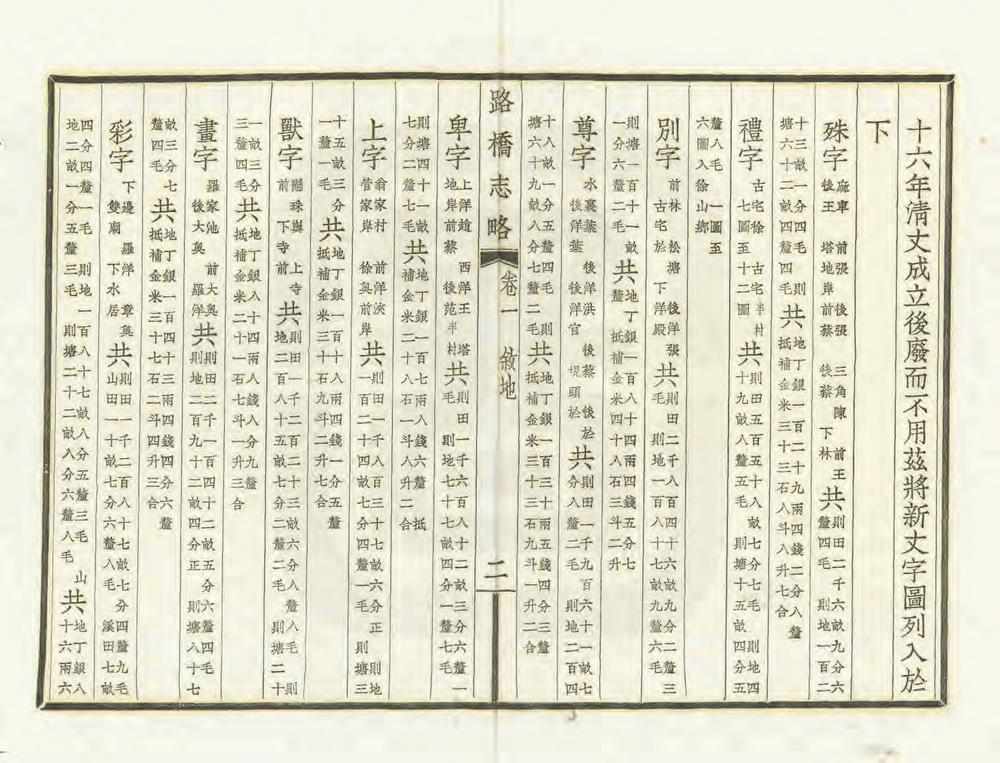 十六年清丈成立後廢而不用茲將新丈字圖列入於
下
殊字 廠車 前張 後張 三角陳 前王 後王 塔地岸前蔡 後蔡 下林 共 則田二千六畝九分六釐四毛 則地一百二
十三畝一分四毛 則塘六十二畝四釐四毛 共 地丁銀一百二十九兩四錢二分八釐 抵補金米三十三石八斗八升七合
禮字 古宅徐 古宅半村 七圖至十二圖 共 則田五百五十八畝七分七毛 則地四十九畝八釐五毛 則塘十五畝四分五
釐八毛 一圖至六圖入徐山鄉
別字 前林 松塘 後洋張 古宅於 下洋殿 共 則田二千八百四十六畝九分二釐三毛 則地一百八十七畝九釐六毛
則塘一百十一畝一分六釐二毛 共 地丁銀一百八十四兩四錢五分七 抵補金米四十八石三斗二升
尊字 水裏葉 後洋洪 後蔡 後於 後洋葉 後洋官 堤頭於 共 則田一千九百六十一畝七分八釐二毛 則地二百四
十八畝一分五釐四毛 則塘六十九畝八分七釐二毛 共 地丁銀一百三十兩五錢四分三釐 抵補金米三十三石九斗一升二合
路橋志略 卷一 敘地 二
卑字 上洋趙 西洋王 塔地岸前蔡 後范半村 共 則田一千六百八十二畝三分六釐一毛 則地七十七畝四分一釐七毛
則塘四十一畝七分二釐七毛 共 地丁銀一百七兩八錢六釐 抵補金米二十八石一斗八升二合
上字 翁家村 前洋浹 管家岸 徐奧前岸 共 則田一千八百三十七畝六分正 則地一百二十四畝七分四釐一毛 則塘三
十五畝三分一釐一毛 共 地丁銀一百十八兩四錢一分五釐 抵補金米三十石九斗二升七合
獸字 懸珠與 上寺前 下寺前 共 則田一千二百二十三畝六分八釐八毛 則地二百八十五畝七分二釐二毛 則塘二十
一畝三分三釐四毛 共 地丁銀八十四兩八錢八分九釐 抵補金米二十一石七斗一升三合
畫字 羅家池 前大奧 後大奧 羅洋 共 則田二千一百四十二畝五分六釐四毛 則地二百九十二畝四分正 則塘八十七
畝三分七釐四毛 共 地丁銀一百四十三兩四錢四分六釐 抵補金米三十七石二斗四升三合
彩字 下邊 羅洋 章奧 雙廟 下水居 共 則田一千二百八十七畝七分四釐九毛 山田一十畝七分六釐八毛 溪田七畝
四分四釐一毛 則地一百八十七畝八分五釐三毛 山地二畝一分五釐三毛 則塘二十二畝八分六釐八毛 共 地丁銀八十六兩六